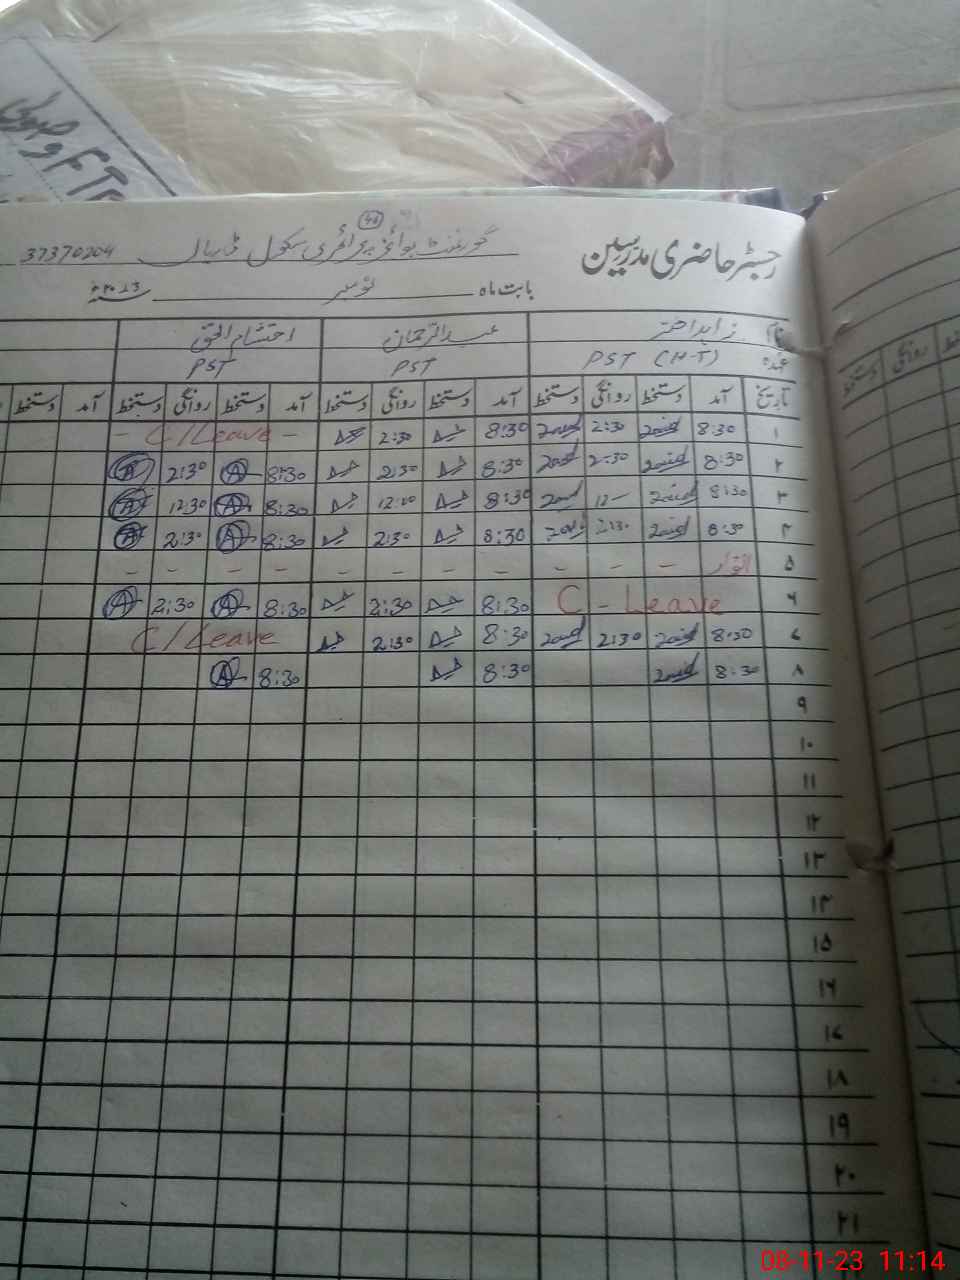 رجسٹر حاضری مدرسین
46
گورنمنٹ بوائز پرائمری سکول 37370204
بابت ماہ نومبر ۲۰۲۳ سنہ
نام زاہد اختر عبدالرحمان احتشام الحق
عہدہ PST (H-T) PST PST
تاریخ آمد دستخط روانگی دستخط آمد دستخط روانگی دستخط آمد دستخط روانگی دستخط آمد دستخط
۱ 8:30 Zaid 2:30 Zaid 8:30 2:30 - C/Leave -
۲ 8:30 Zaid 2:30 Zaid 8:30 2:30 8:30 A 2:30 A
۳ 8:30 Zaid 12- Zaid 8:30 12:00 8:30 A 12:30 A
۴ 8:30 Zaid 2:30 Zaid 8:30 2:30 8:30 A 2:30 A
۵ اتوار - - - - - - - - - - -
۶ C - Leave 8:30 2:30 8:30 A 2:30 A
۷ 8:30 Zaid 2:30 Zaid 8:30 2:30 C/Leave
۸ 8:30 Zaid 8:30 8:30 A
۹
۱۰
۱۱
۱۲
۱۳
۱۴
۱۵
۱۶
۱۷
۱۸
۱۹
۲۰
۲۱
روانگی دستخط
08-11-23 11:14